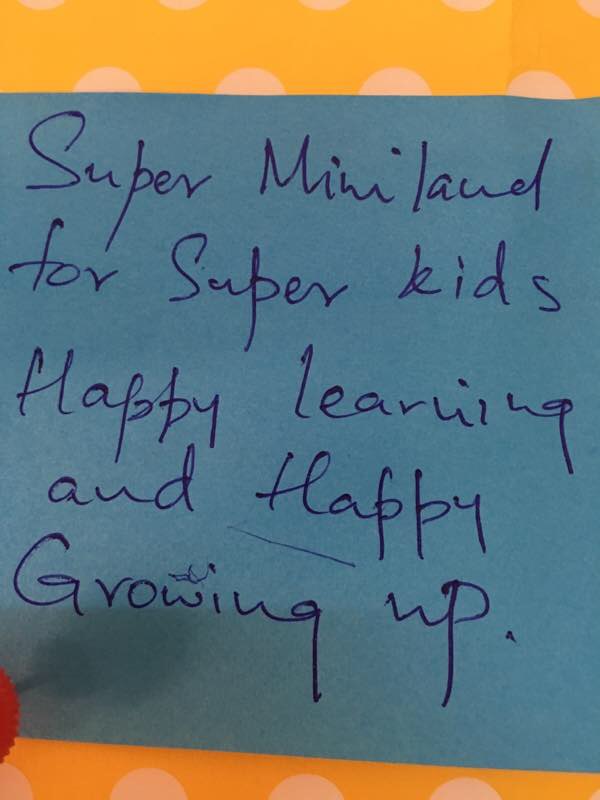 Super Miniland
for Super kids
Happy learning
and Happy
Growing up.